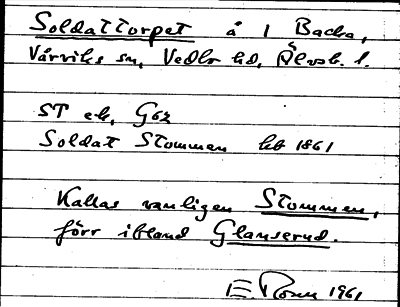 Soldattorpet å 1 Backa,
Vårviks sn, Vedbo hd, Älvsb. l.
ST ek, G62
Soldat Stommen hb 1861
Kallas vanligen Stommen,
förr ibland Glanserud.
E. Rosén 1961